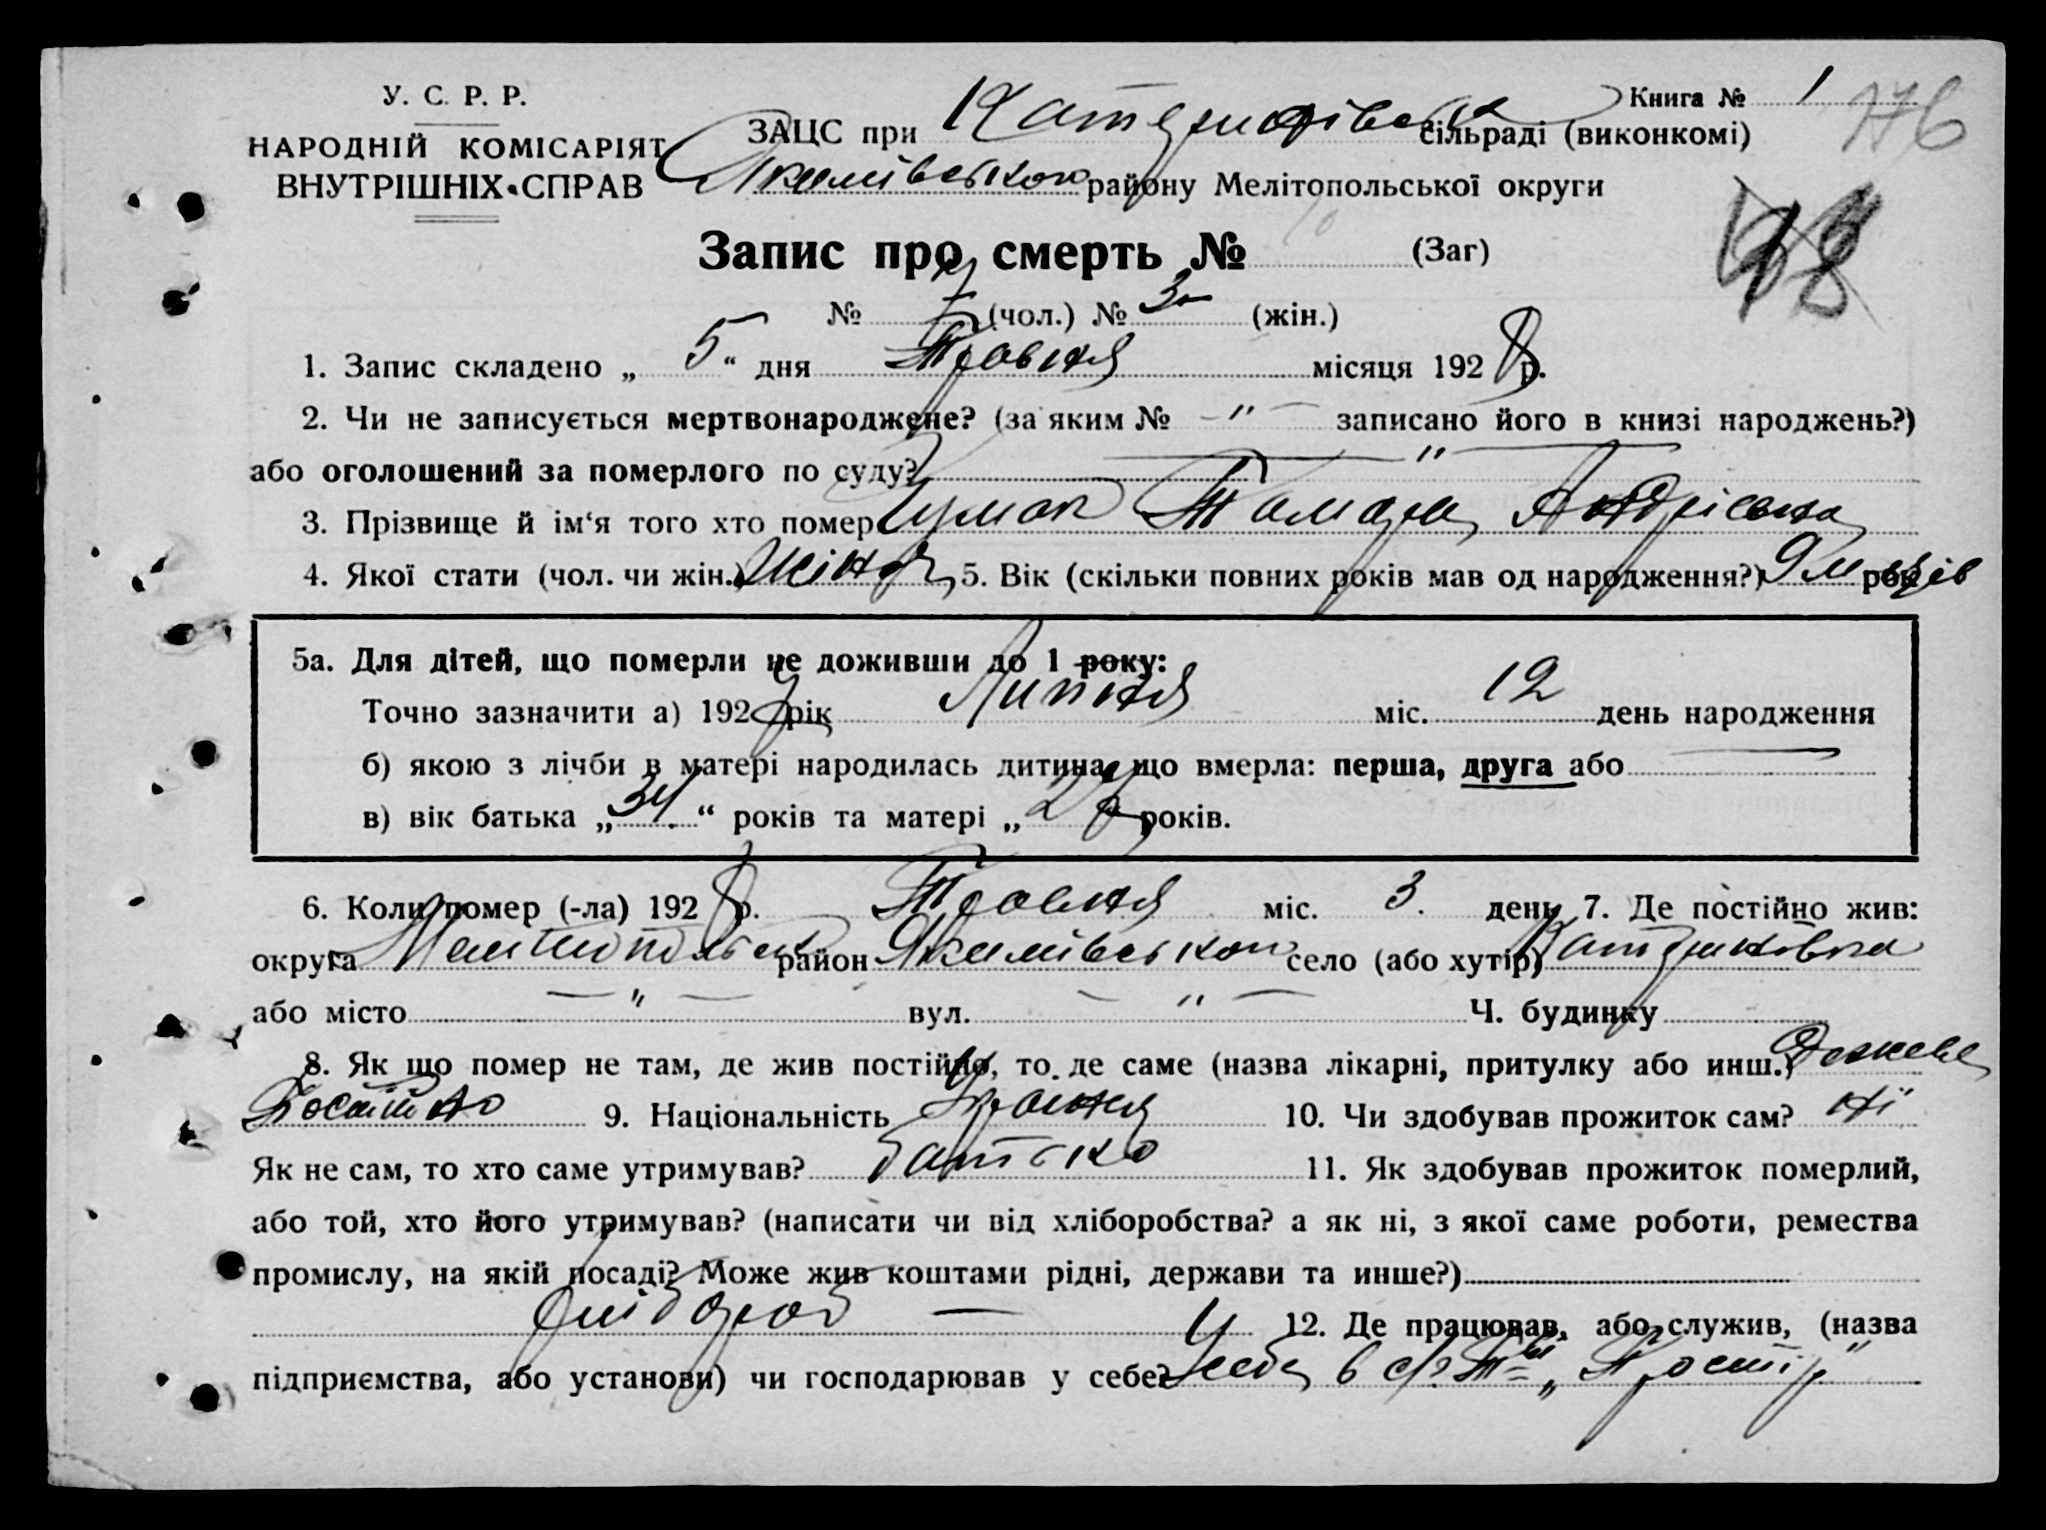 У. С. Р. Р.
НАРОДНІЙ КОМІСАРІЯТ
ВНУТРІШНІХ СПРАВ
Книга № 1 176
ЗАЦС при сільраді (виконкомі)
Якимівського району Мелітопольської округи
48
Запис про смерть № 10 (Заг)
№ 7 (чол.) № 3 (жін.)
1. Запис складено „ 5 “ дня Травня місяця 1928 р.
2. Чи не записується мертвонароджене? (за яким № — " — записано його в книзі народжень?)
або оголошений за померлого по суду? — " —
3. Прізвище й ім‘я того хто помер Чумак Тамара Андріевна
4. Якої стати (чол. чи жін.) Жіноч, 5. Вік (скільки повних років мав од народження?) 9 м-ців рок
5а. Для дітей, що померли не доживши до 1 року:
Точно зазначити а) 1927 рік Липня міс. 12 день народження
б) якою з лічби в матері народилась дитина, що вмерла: перша, друга або —
в) вік батька „ 34 “ років та матері „ 27 років.
6. Коли помер (-ла) 1928 р. Травня міс. 3 день 7. Де постійно жив:
округа район Якимівського село (або хутір)
або місто — " — вул. — " — Ч. будинку
8. Як що помер не там, де жив постійно, то де саме (назва лікарні, притулку або инш.)
Постійно 9. Національність 10. Чи здобував прожиток сам? ні
Як не сам, то хто саме утримував? батько 11. Як здобував прожиток померлий,
або той, хто його утримував? (написати чи від хліборобства? а як ні, з якої саме роботи, ремества
промислу, на якій посаді? Може жив коштами рідні, держави та инше?)
хлібороб — 12. Де працював, або служив, (назва
підприємства, або установи) чи господарював у себе? У себе в „Простір“